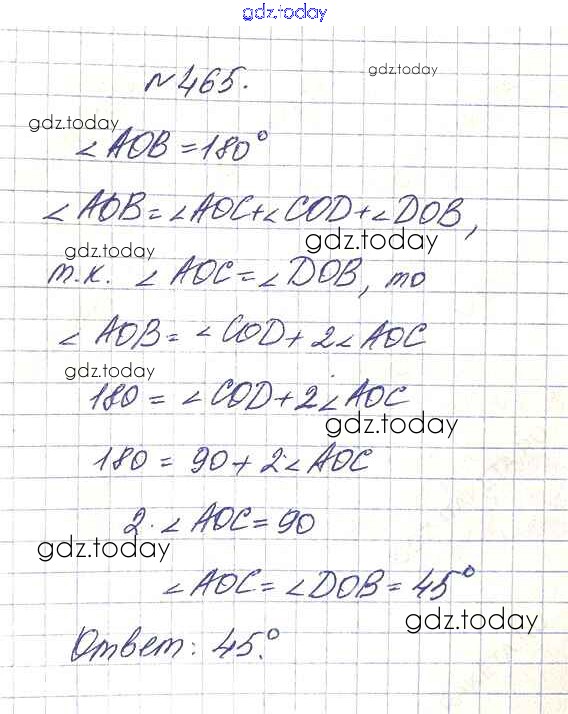 gdz.today
№465.
gdz.today
gdz.today
∠AOB = 180°
∠AOB = ∠AOC + ∠COD + ∠DOB,
gdz.today
gdz.today
т.к. ∠AOC = ∠DOB, то
∠AOB = ∠COD + 2∠AOC
gdz.today
180 = ∠COD + 2·∠AOC
gdz.today
180 = 90 + 2·∠AOC
2·∠AOC = 90
gdz.today
∠AOC = ∠DOB = 45°
gdz.today
Ответ: 45°.